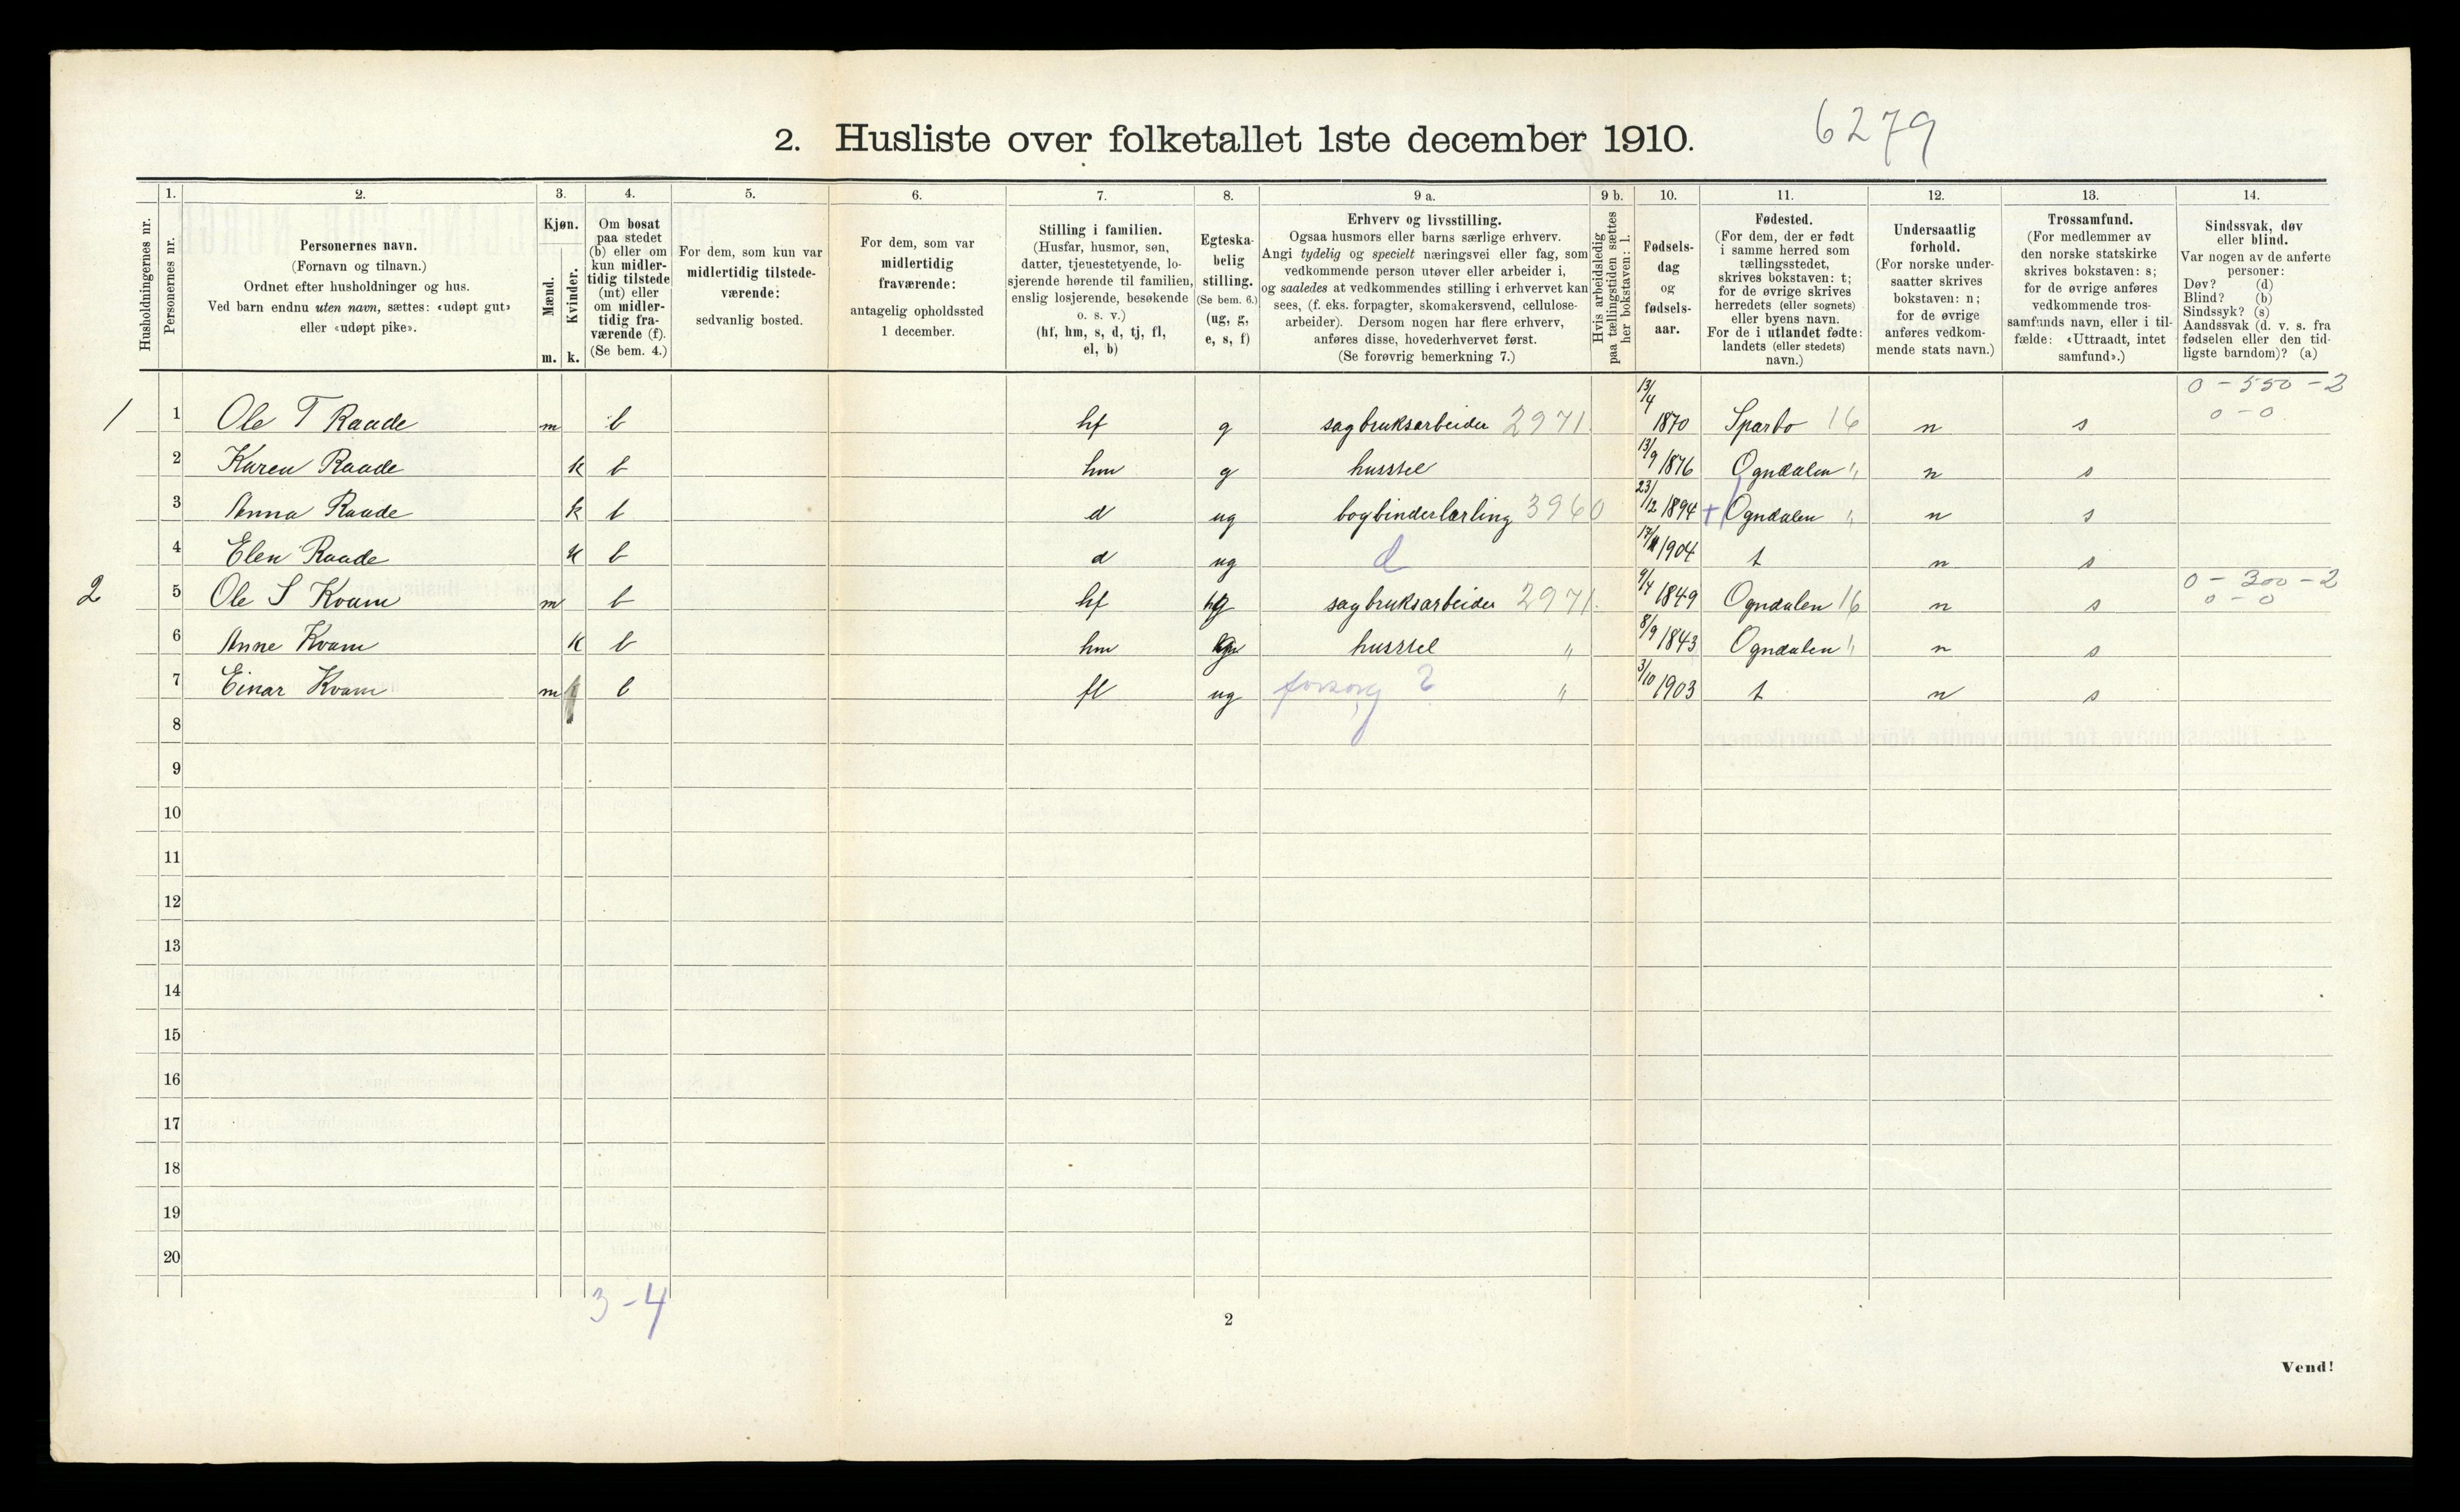 2. Husliste over folketallet 1ste december 1910. 6279
1. 2. 3. 4. 5. 6. 7. 8. 9 a. 9 b. 10. 11. 12. 13. 14.
Husholdningernes nr.
Personernes nr.
Personernes navn.
(Fornavn og tilnavn.)
Ordnet efter husholdninger og hus.
Ved barn endnu uten navn, sættes: «udøpt gut»
eller «udøpt pike».
Kjøn.
Mænd.
Kvinder.
m. k.
Om bosat
paa stedet
(b) eller om
kun midler-
tidig tilstede
(mt) eller
om midler-
tidig fra-
værende (f).
(Se bem. 4.)
For dem, som kun var
midlertidig tilstede-
værende:
sedvanlig bosted.
For dem, som var
midlertidig
fraværende:
antagelig opholdssted
1 december.
Stilling i familien.
(Husfar, husmor, søn,
datter, tjenestetyende, lo-
sjerende hørende til familien,
enslig losjerende, besøkende
o. s. v.)
(hf, hm, s, d, tj, fl,
el, b)
Egteska-
belig
stilling.
(Se bem. 6.)
(ug, g,
e, s, f)
Erhverv og livsstilling.
Ogsaa husmors eller barns særlige erhverv.
Angi tydelig og specielt næringsvei eller fag, som
vedkommende person utøver eller arbeider i,
og saaledes at vedkommendes stilling i erhvervet kan
sees, (f. eks. forpagter, skomakersvend, cellulose-
arbeider). Dersom nogen har flere erhverv,
anføres disse, hovederhvervet først.
(Se forøvrig bemerkning 7.)
Hvis arbeidsledig
paa tællingstiden sættes
her bokstaven: l.
Fødsels-
dag
og
fødsels-
aar.
Fødested.
(For dem, der er født
i samme herred som
tællingsstedet,
skrives bokstaven: t;
for de øvrige skrives
herredets (eller sognets)
eller byens navn.
For de i utlandet fødte:
landets (eller stedets)
navn.)
Undersaatlig
forhold.
(For norske under-
saatter skrives
bokstaven: n;
for de øvrige
anføres vedkom-
mende stats navn.)
Trossamfund.
(For medlemmer av
den norske statskirke
skrives bokstaven: s;
for de øvrige anføres
vedkommende tros-
samfunds navn, eller i til-
fælde: «Uttraadt, intet
samfund».)
Sindssvak, døv
eller blind.
Var nogen av de anførte
personer:
Døv? (d)
Blind? (b)
Sindssyk? (s)
Aandssvak (d. v. s. fra
fødselen eller den tid-
ligste barndom)? (a)
0 - 550 - 2
1 1 Ole T Raade m b hf g sagbruksarbeider 2971 13/4 1870 Sparbo 16 n s 0 - 0
2 Karen Raade k b hm g husstel 13/9 1876 Ogndalen " n s
3 Anna Raade k b d ug bogbinderlærling 3960 23/12 1894 + Ogndalen " n s
4 Elen Raade k b d ug d 1904 t n s
0 - 300 - 2
2 5 Ole S Kvam m b hf g sagbruksarbeider 2971 9/4 1849 Ogndalen 16 n s 0 - 0
6 Anne Kvam k b hm g husstel " 8/9 1843 Ogndalen " n s
7 Einar Kvam m b fl ug forsørg ? " 3/10 1903 t n s
8
9
10
11
12
13
14
15
16
17
18
19
20
3-4
2
Vend!